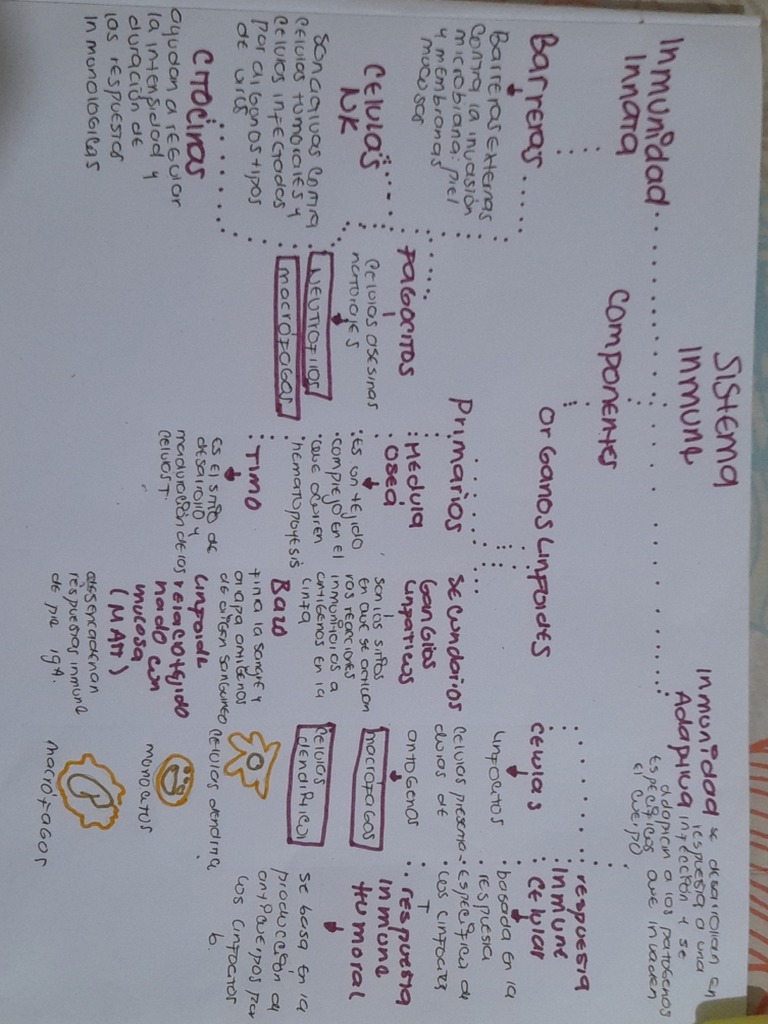 SISTEMA
INMUNE
Inmunidad
Innata
Componentes
Inmunidad
Adaptiva
se desarrollan en
respuesta a una
infección y se
adapten a los patogenos
especificos que invaden
el cuerpo
Barreras
Barreras externas
contra la invasión
microbiana: piel
y membranas
mucosas
Celulas
NK
son activas contra
celulas tumorales y
celulas infegados
por algonos tipos
de virus
Citocinas
ayudan a regular
la intensidad y
duración de
los respuestas
inmunologicas
Fagocitos
celulas asesinas
naturales
NEUTROFILOS
macrofagos
Organos Linfoides
Primarios
Medula
osea
Es un tejido
complejo en el
que ocurren
hematopoyesis
Timo
es el sitio de
desarrollo y
maduración de los
celulas T.
Secundarios
Ganglios
Linfaticos
son los sitios
en que se activan
ros reacciones
inmunitarios a
antigenos en la
Linfa
Bazo
Filtra la sangre y
atrapa antigenos
de origen sanguineo
Linfoide
relacio tejido
nado con
mucosa
(MAtt)
desencadenan
respuestas inmune
de pre IgA.
Celulas
Linfocitos
celulas presenta-
doras de
antogenos
macrofagos
celulas
dendriticas
celulas dendrita
monocitos
macrofagos
respuesta
inmune
celular
basada en la
respuesta
especifica de
Los Linfocitos
T
respuesta
inmune
humoral
se basa en la
producción de
anticuerpos por
Los Linfocitos
b.